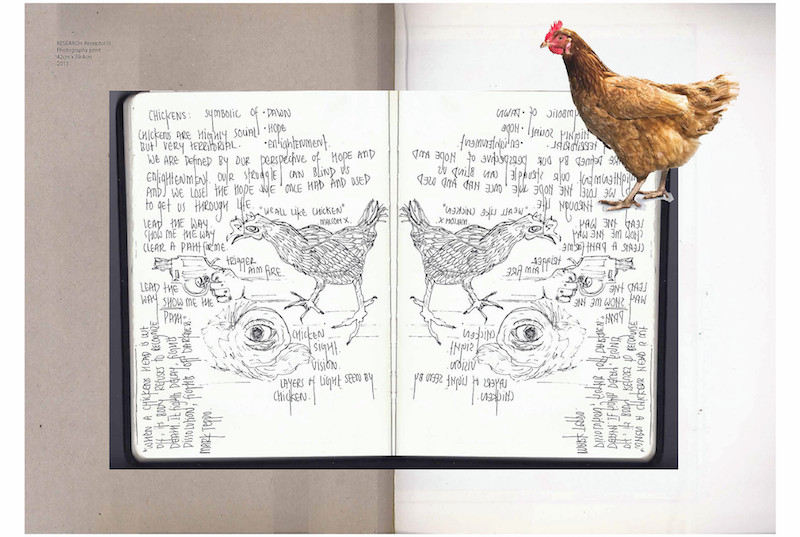 RESEARCH
Photography print
42cm x 59.4cm
2013
CHICKENS: symbolic of • DAWN
• HOPE
• enlightenment.
CHICKENS ARE HIGHLY SOCIAL
BUT VERY TERRITORIAL.
WE ARE DEFINED BY OUR PERSPECTIVE OF HOPE AND
enlightenment. OUR struggle CAN BLIND US
AND WE LOSE THE HOPE WE ONCE HAD AND USED
to get US through life
"WE ALL LIKE CHICKEN"
MALCOM X.
LEAD THE WAY
SHOW ME THE WAY
CLEAR A PATH for me
TRIGGER
AIM FIRE.
LEAD THE
WAY SHOW ME THE
PATH"
CHICKEN
sight.
VISION.
LAYERS of light SEEN BY
CHICKEN.
"WHEN A CHICKENS HEAD IS CUT
OFF. ITS BODY REFUSES TO RECOGNIZE
DEATH. IT FIGHTS DECAY, FIGHTS
DISSOLUTION, FIGHTS OFF DARKNESS"
MARK TEPPO